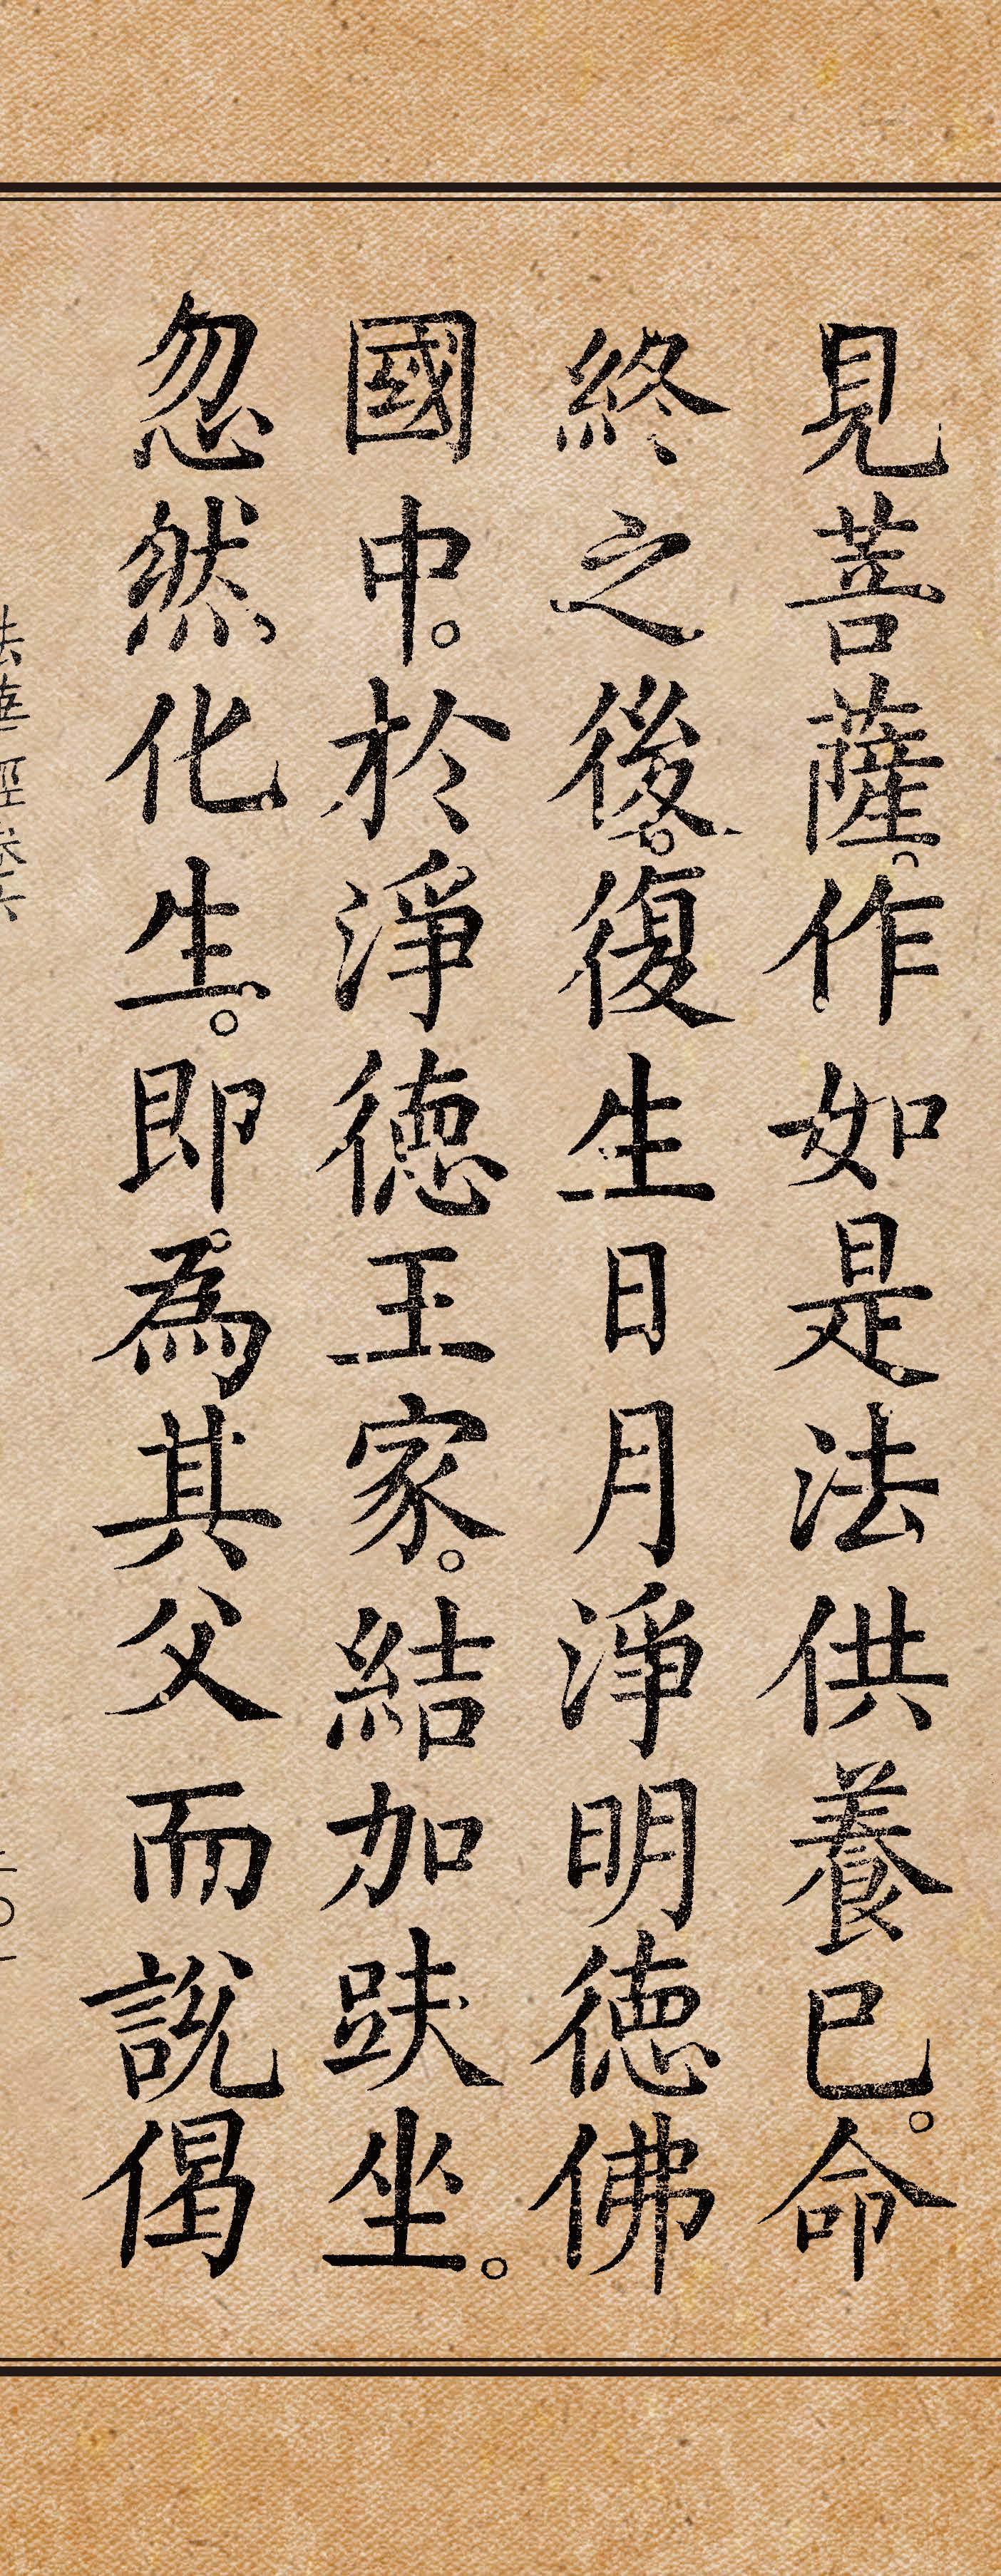 見菩薩。作如是法供養已。命
終之後。復生日月淨明德佛
國中。於淨德王家。結加趺坐。
忽然化生。即。為其父而說偈
法華經卷六